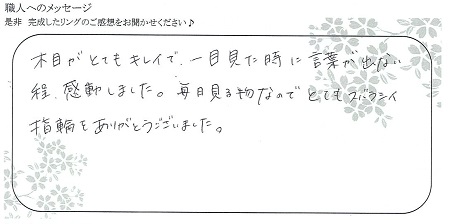 職人へのメッセージ
是非 完成したリングのご感想をお聞かせください♪
木目がとてもキレイで、一目見た時に言葉が出ない
程、感動しました。毎日見る物なのでとてもスバラシイ
指輪をありがとうございました。